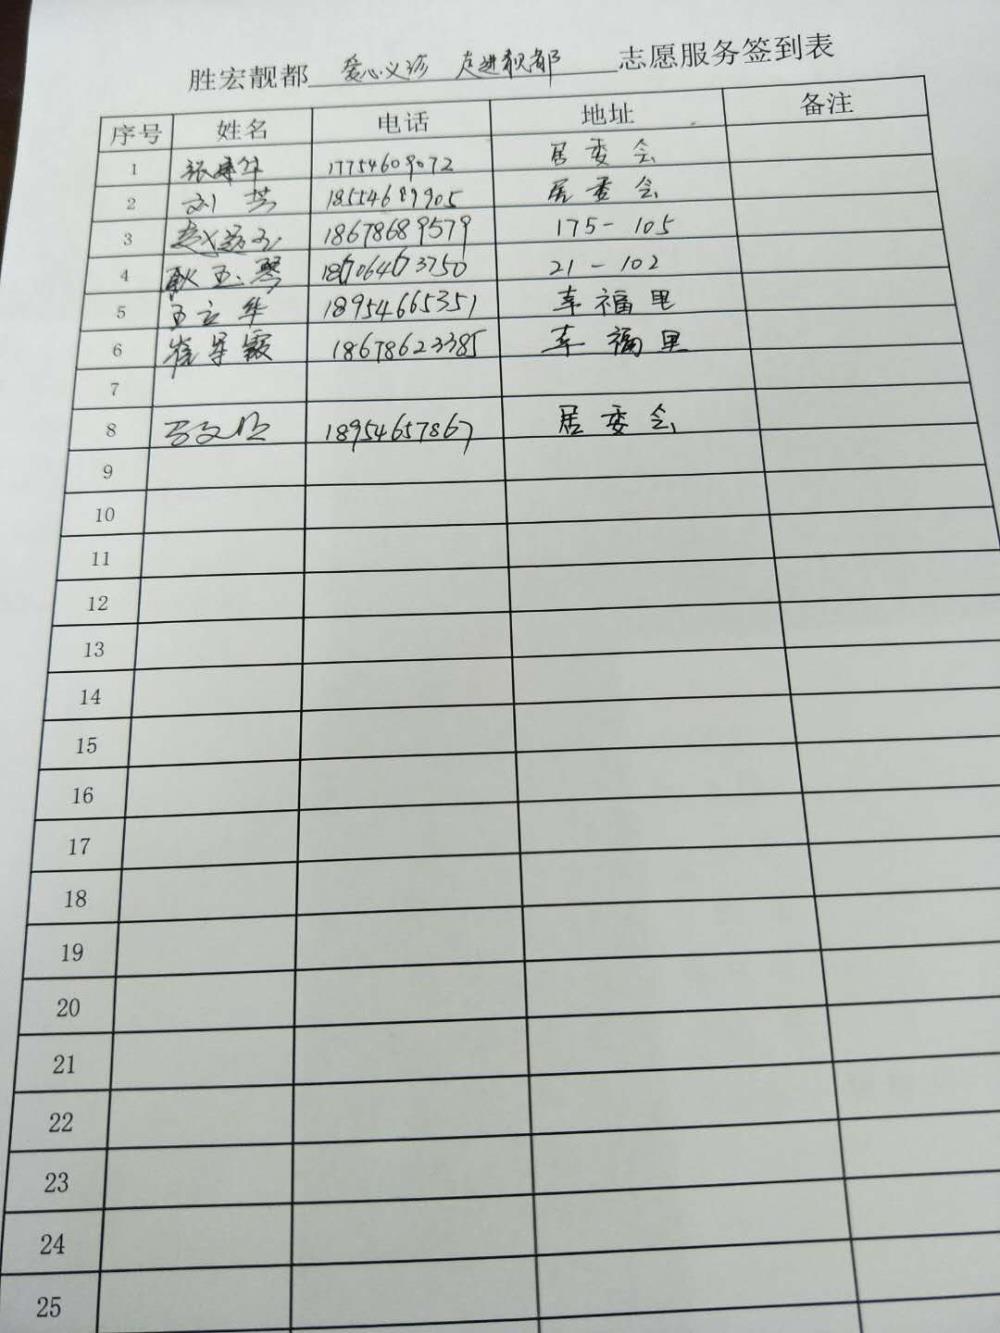 胜宏靓都 爱心义诊 走进靓都 志愿服务签到表
序号 姓名 电话 地址 备注
1 张 华 17754609072 居委会
2 刘芸 18554689905 居委会
3 赵 18678689579 175-105
4 耿玉琴 18706473750 21-102
5 王立华 18954665351 幸福里
6 崔 霞 18678623385 幸福里
7
8 18954657867 居委会
9
10
11
12
13
14
15
16
17
18
19
20
21
22
23
24
25